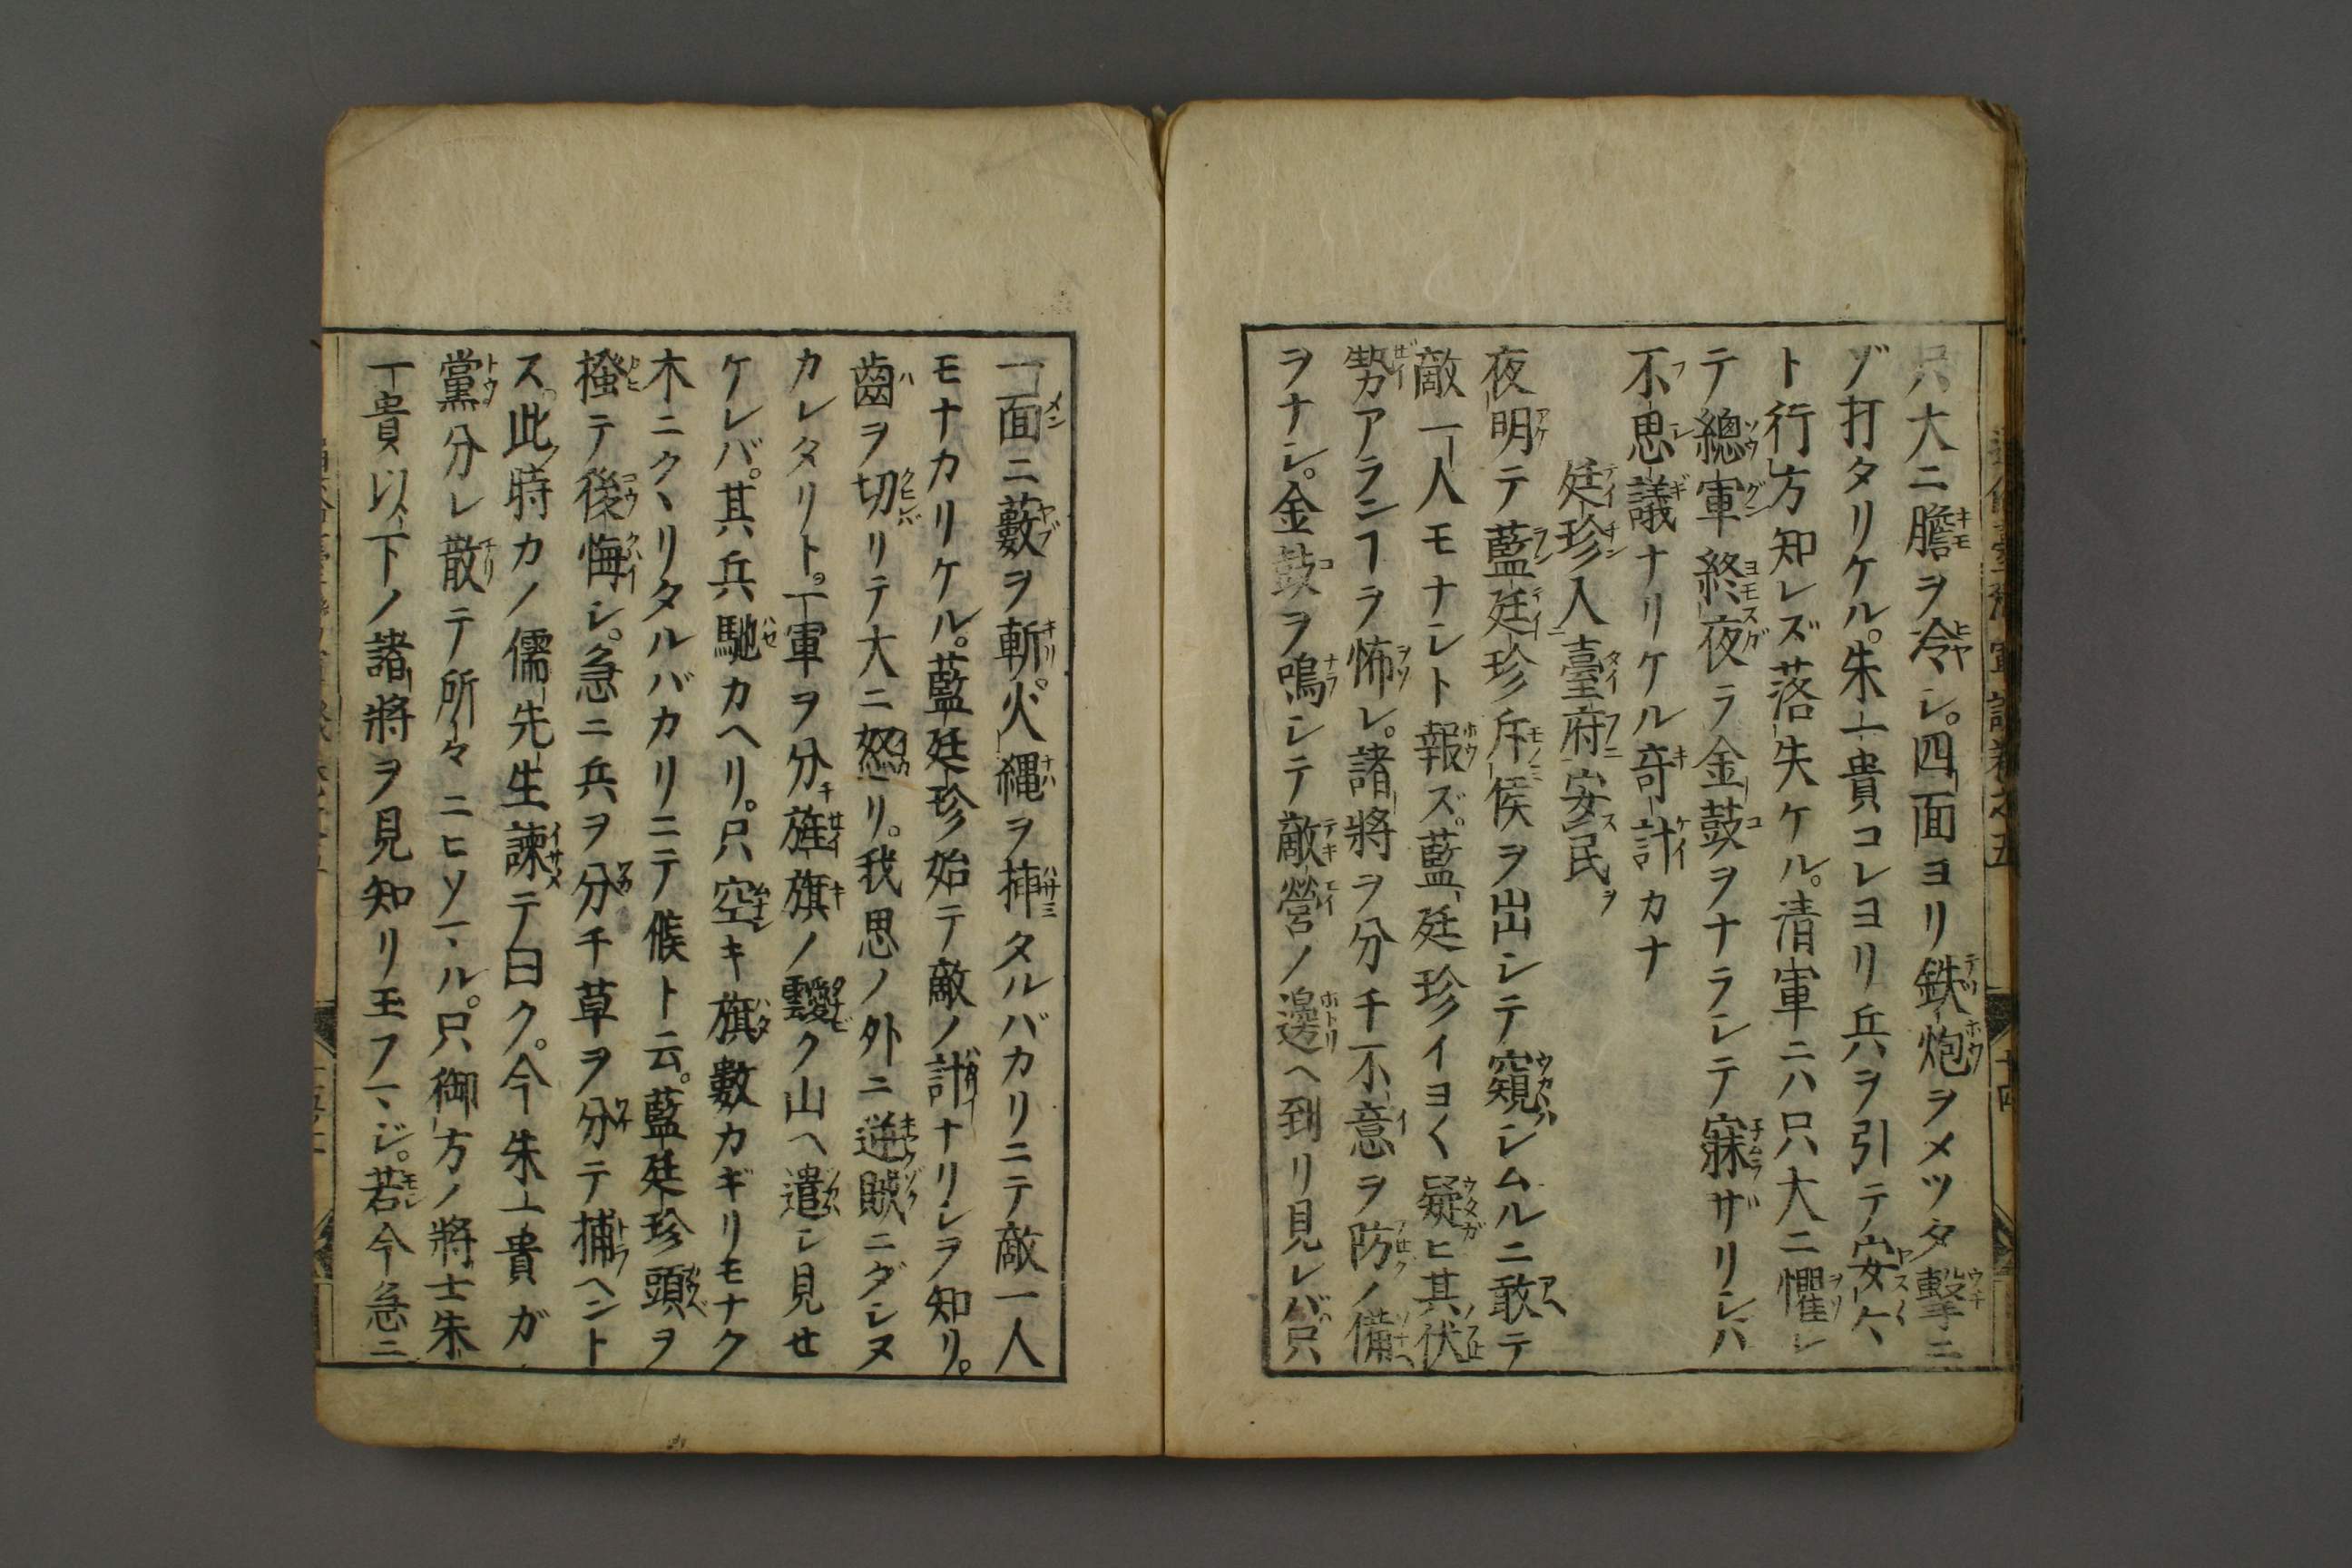 只大ニ膽ヲ冷シ。四面ヨリ鉄炮ヲメツタ撃ニ
ゾ打タリケル。朱一貴コレヨリ兵ヲ引テ安々
ト行方知レズ落失ケル。清軍ニハ只大ニ懼レ
テ總軍終夜ラ金鼓ヲナラシテ寐ザリシハ
不思議ナリケル奇計カナ
廷珍入臺府安民
夜明テ藍廷珍斥候ヲ出シテ窺シムルニ敢テ
敵一人モナシト報ズ。藍廷珍イヨ〱疑ヒ其伏
勢アランヿヲ怖レ。諸將ヲ分チ不意ヲ防ノ備
ヲナシ。金鼓ヲ鳴シテ敵營ノ邊ヘ到リ見レバ只
一面ニ藪ヲ斬。火縄ヲ挿タルバカリニテ敵一人
モナカリケル。藍廷珍始テ敵ノ計ナリシヲ知リ。
齒ヲ切リテ大ニ怒リ。我思ノ外ニ逆賊ニダシヌ
カレタリト。一軍ヲ分チ旌旗ノ靉ク山ヘ遣シ見せ
ケレバ。其兵馳カヘリ。只空キ旗數カギリモナク
木ニクヽリタルバカリニテ候ト云。藍廷珍頭ヲ
掻テ後悔シ。急ニ兵ヲ分チ草ヲ分テ捕ヘント
ス。此時カノ儒先生諫テ曰ク。今朱一貴ガ
黨分レ散テ所々ニヒソマル。只御方ノ將士朱
一貴以下ノ諸將ヲ見知リ玉フマジ。若今急ニ